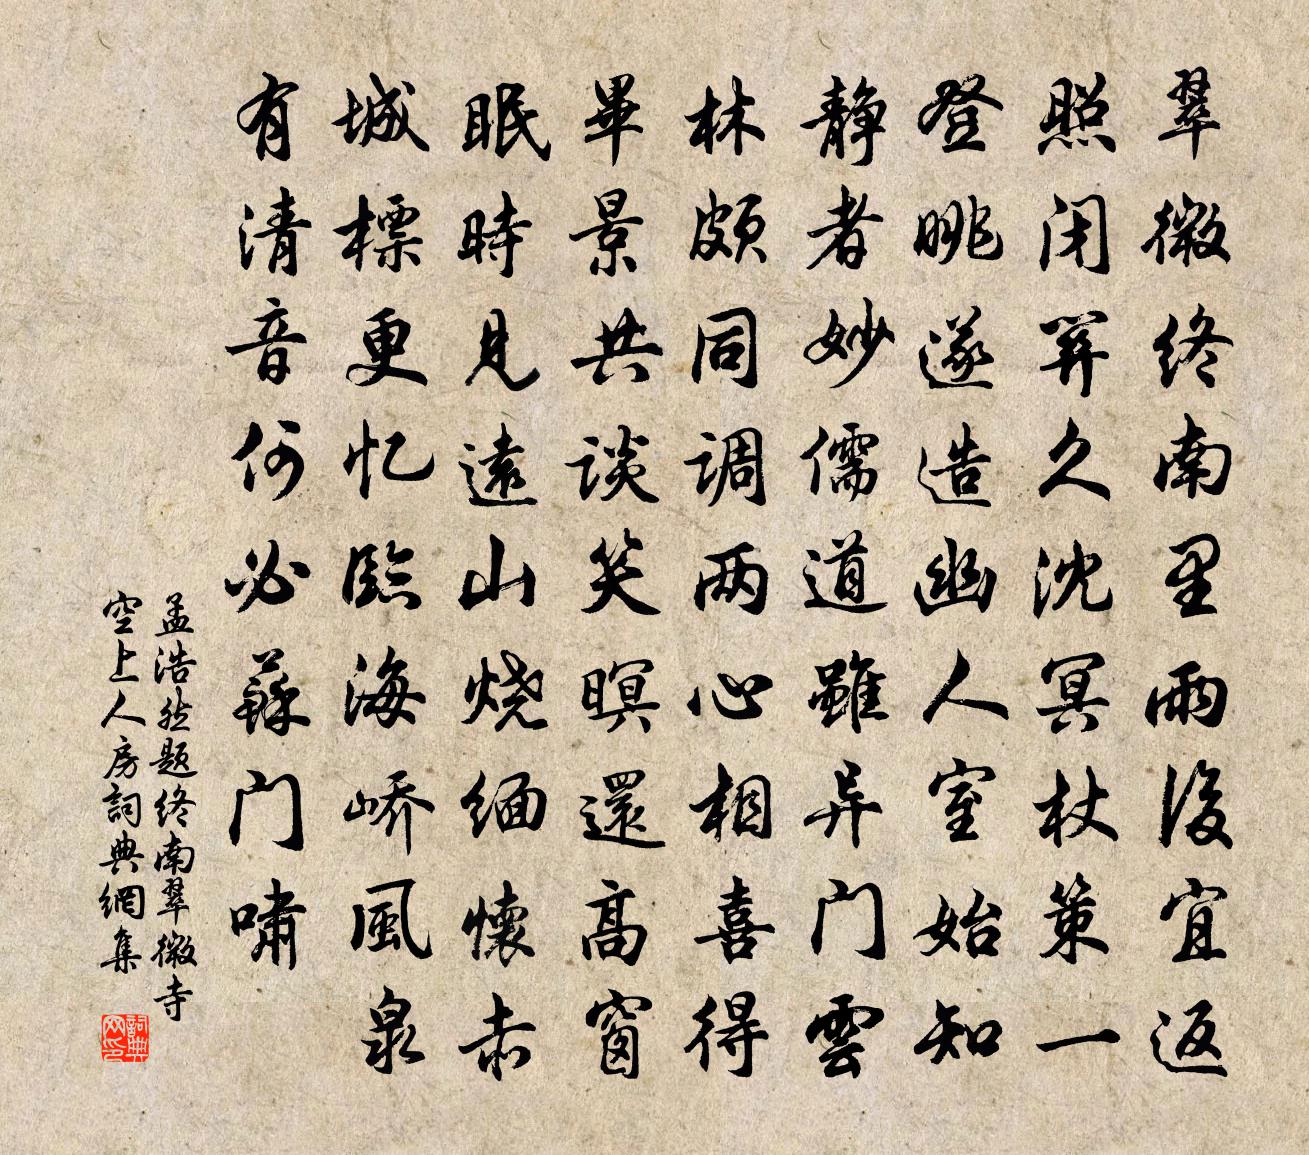 翠微终南里雨後宜返
照闭關久沈冥杖策一
登眺遂造幽人室始知
静者妙儒道雖异门雲
林頗同调两心相喜得
畢景共谈笑暝還高窗
眠時見遠山烧缅懷赤
城標更忆臨海峤風泉
有清音何必蘇门嘯
孟浩然题终南翠微寺
空上人房詞典網集
詞典
网印